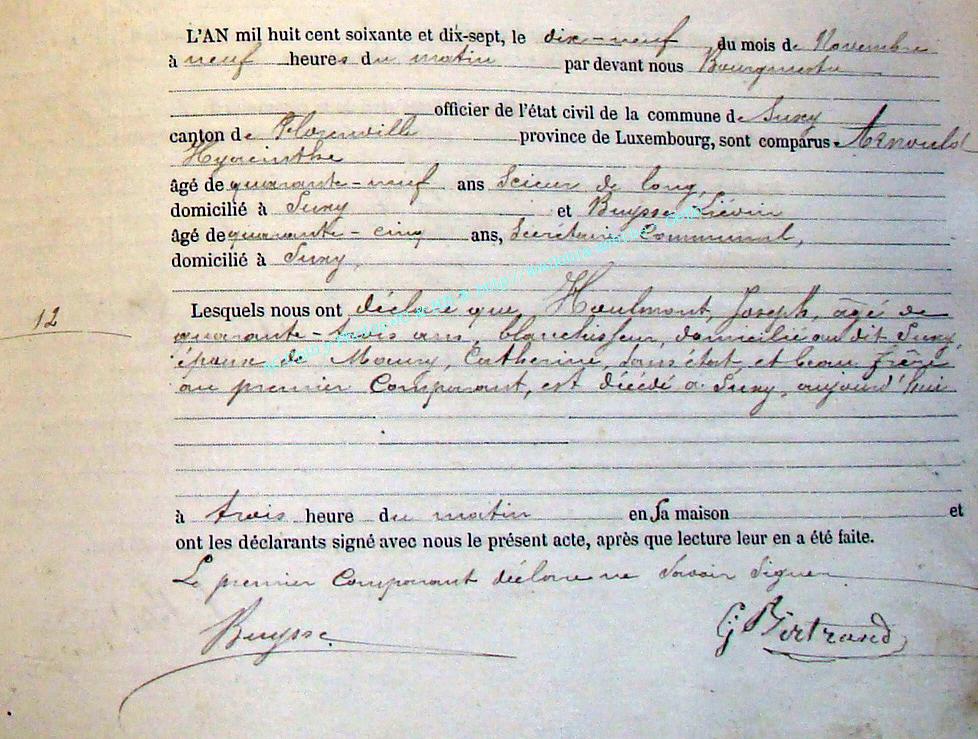 L'AN mil huit cent soixante et dix-sept, le dix-neuf du mois de Novembre
à neuf heures du matin par devant nous Bourgmestre
officier de l'état civil de la commune de Suxy
canton de Florenville province de Luxembourg, sont comparus Arnould
Hyacinthe
âgé de quarante-neuf ans Scieur de long,
domicilié à Suxy et Buysse Liévin
âgé de quarante-cinq ans, Secrétaire Communal,
domicilié à Suxy,
12
Lesquels nous ont déclaré que Houlmont, Joseph, âgé de
quarante-trois ans, blanchisseur, domicilié au dit Suxy,
époux de Maury, Catherine, sans état, et beau frère
au premier Comparant, est décédé à Suxy, aujourd'hui
à trois heure du matin en sa maison et
ont les déclarants signé avec nous le présent acte, après que lecture leur en a été faite.
Le premier Comparant déclare ne Savoir Signer
Buysse
G Bertrand